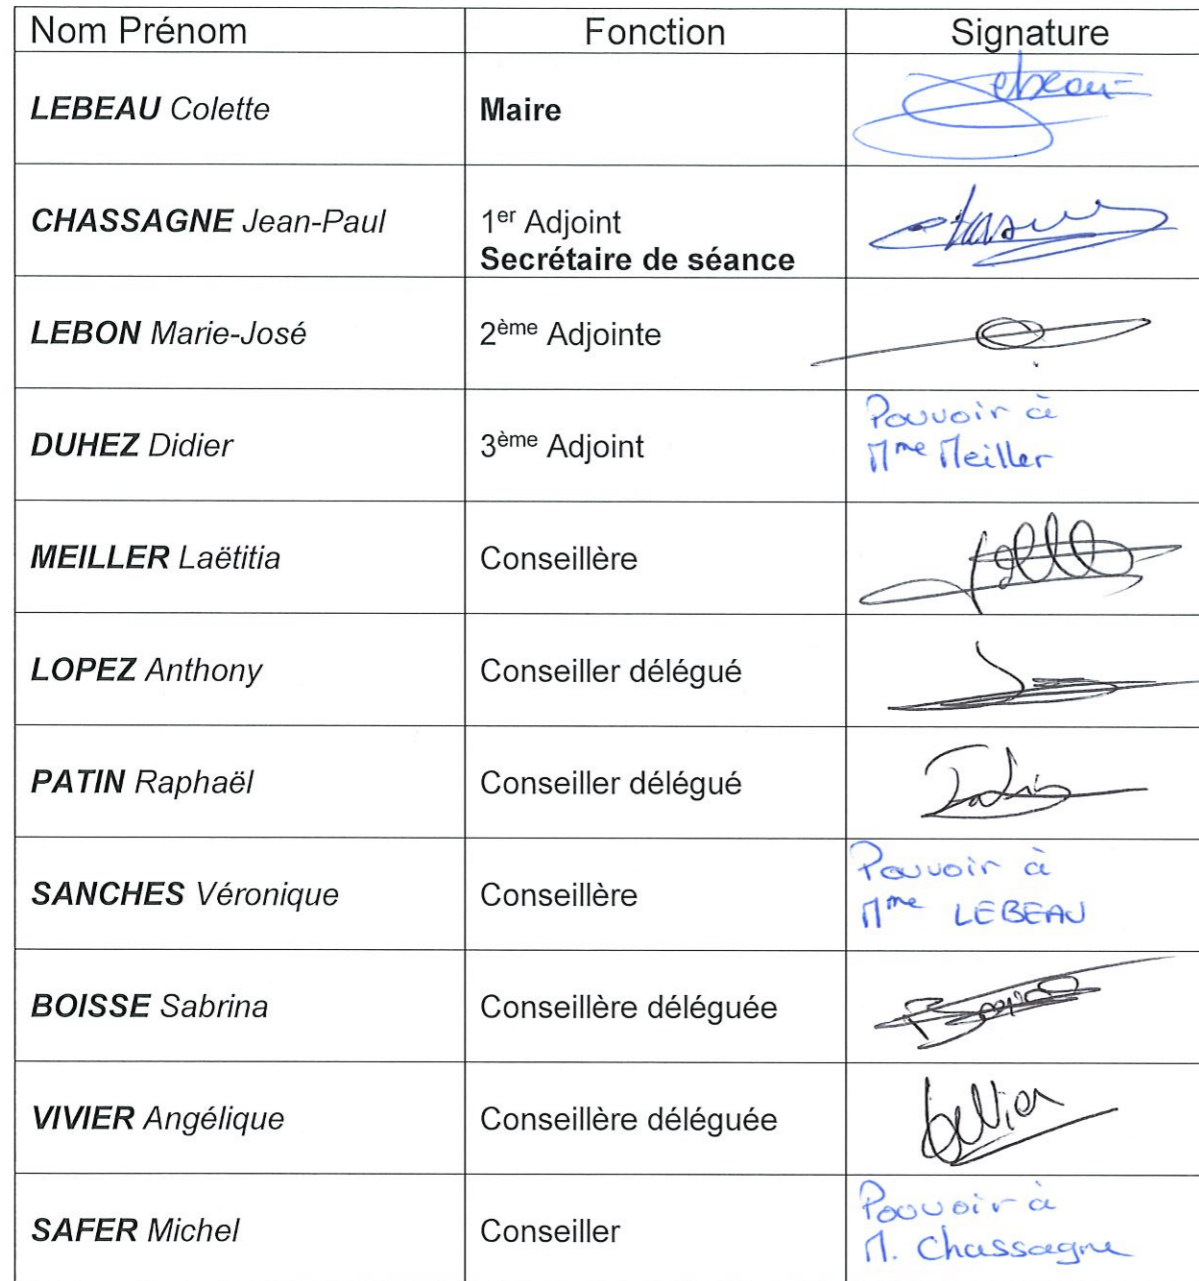 Nom Prénom Fonction Signature
LEBEAU Colette Maire Lebeau
CHASSAGNE Jean-Paul 1er Adjoint
Secrétaire de séance
LEBON Marie-José 2ème Adjointe
DUHEZ Didier 3ème Adjoint Pouvoir à
Mme Meiller
MEILLER Laëtitia Conseillère
LOPEZ Anthony Conseiller délégué
PATIN Raphaël Conseiller délégué
SANCHES Véronique Conseillère Pouvoir à
Mme LEBEAU
BOISSE Sabrina Conseillère déléguée
VIVIER Angélique Conseillère déléguée
SAFER Michel Conseiller Pouvoir à
M. Chassagne